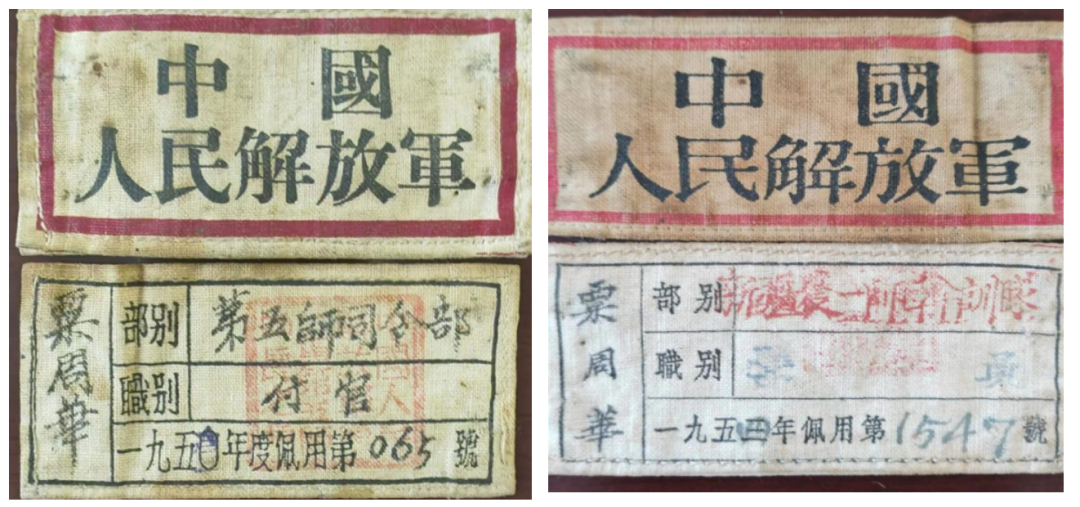 中國
人民解放軍
票周華
部别 第五師司令部
職别 付官
一九五0年度佩用第065號
中國
人民解放軍
票周華
部别
職别 員
一九五四年佩用第1547號